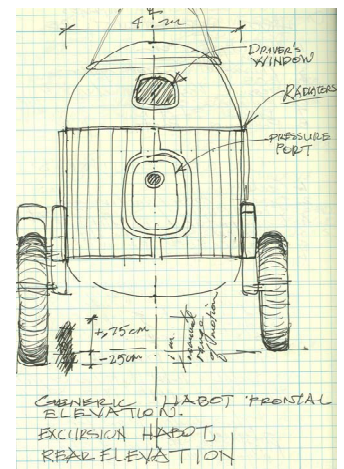 4 m
DRIVER'S
WINDOW
RADIATORS
PRESSURE
PORT
+.75cm
-25cm
1 m.
range
of motion
GENERIC HABOT FRONTAL
ELEVATION.
EXCURSION HABOT,
REAR ELEVATION